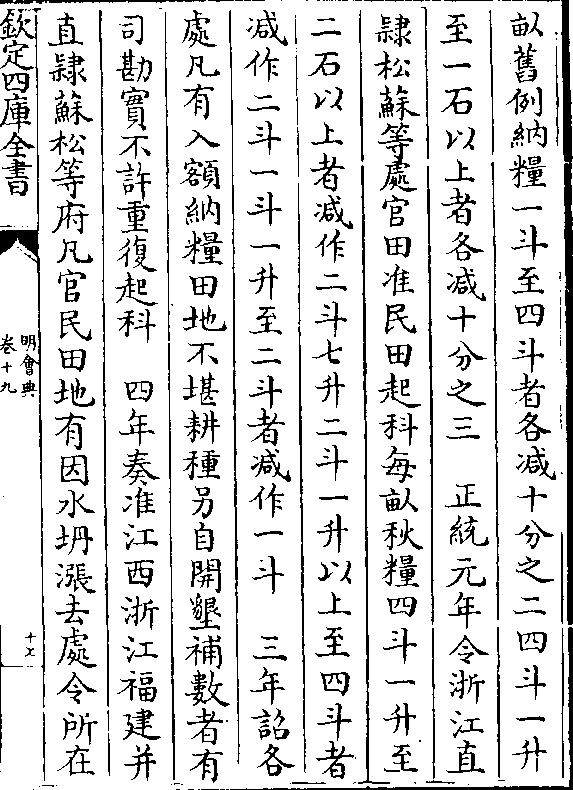 畝舊例納糧一斗至四斗者各减十分之二四斗一升
至一石以上者各减十分之三　正統元年令浙江直
隷松蘇等處官田准民田起科每畝秋糧四斗一升至
二石以上者减作二斗七升二斗一升以上至四斗者
减作二斗一斗一升至二斗者减作一斗　三年詔各
處凡有入額納糧田地不堪耕種另自開墾補數者有
司勘實不許重復起科　四年奏准江西浙江福建并
直隷蘇松等府凡官民田地有因水坍漲去處令所在
欽定四庫全書
明會典
卷十九